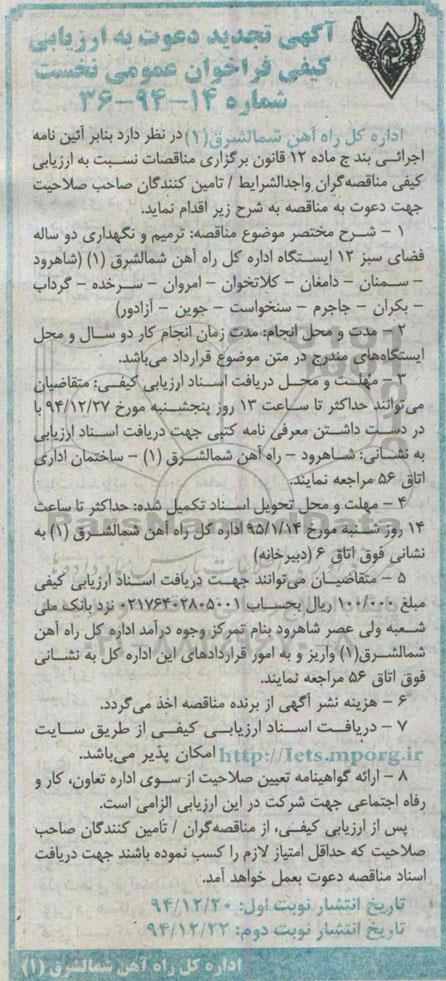 آگهی تجدید دعوت به ارزیابی
کیفی فراخوان عمومی نخست
شماره ۱۴-۹۴-۳۶
اداره کل راه آهن شمالشرق(۱) در نظر دارد بنابر آئین نامه
اجرائی بند ج ماده ۱۲ قانون برگزاری مناقصات نسبت به ارزیابی
کیفی مناقصه‌گران واجدالشرایط / تامین کنندگان صاحب صلاحیت
جهت دعوت به مناقصه به شرح زیر اقدام نماید.
۱ – شرح مختصر موضوع مناقصه: ترمیم و نگهداری دو ساله
فضای سبز ۱۲ ایستگاه اداره کل راه آهن شمالشرق (۱) (شاهرود
– سمنان – دامغان – کلاتخوان – امروان – سرخده – گرداب
– بکران – جاجرم – سنخواست – جوین – آزادور)
۲ – مدت و محل انجام: مدت زمان انجام کار دو سال و محل
ایستگاه‌های مندرج در متن موضوع قرارداد می‌باشد.
– مهلت و محل دریافت اسناد ارزیابی کیفی: متقاضیان
می‌توانند حداکثر تا ساعت ۱۳ روز پنجشنبه مورخ ۹۴/۱۲/۲۷ با
در دست داشتن معرفی نامه کتبی جهت دریافت اسناد ارزیابی
به نشانی: شاهرود – راه آهن شمالشرق (۱) – ساختمان اداری
اتاق ۵۶ مراجعه نمایند.
۴ – مهلت و محل تحویل اسناد تکمیل شده: حداکثر تا ساعت
۱۴ روز شنبه مورخ ۹۵/۱/۱۴ اداره کل راه آهن شمالشرق (۱) به
نشانی فوق اتاق ۶ (دبیرخانه)
۵ – متقاضیان می‌توانند جهت دریافت اسناد ارزیابی کیفی
مبلغ ۱۰۰/۰۰۰ ریال بحساب ۰۲۱۷۶۴۰۲۸۰۵۰۰۱ نزد بانک ملی
شعبه ولی عصر شاهرود بنام تمرکز وجوه درآمد اداره کل راه آهن
شمالشرق(۱) واریز و به امور قراردادهای این اداره کل به نشانی
فوق اتاق ۵۶ مراجعه نمایند.
۶ – هزینه نشر آگهی از برنده مناقصه اخذ می‌گردد.
۷ – دریافت اسناد ارزیابی کیفی از طریق سایت
http://Iets.mporg.ir امکان پذیر می‌باشد.
۸ – ارائه گواهینامه تعیین صلاحیت از سوی اداره تعاون، کار و
رفاه اجتماعی جهت شرکت در این ارزیابی الزامی است.
پس از ارزیابی کیفی، از مناقصه‌گران / تأمین کنندگان صاحب
صلاحیت که حداقل امتیاز لازم را کسب نموده باشند جهت دریافت
اسناد مناقصه دعوت بعمل خواهد آمد.
تاریخ انتشار نوبت اول: ۹۴/۱۲/۲۰
تاریخ انتشار نوبت دوم: ۹۴/۱۲/۲۲
اداره کل راه آهن شمالشرق (۱)